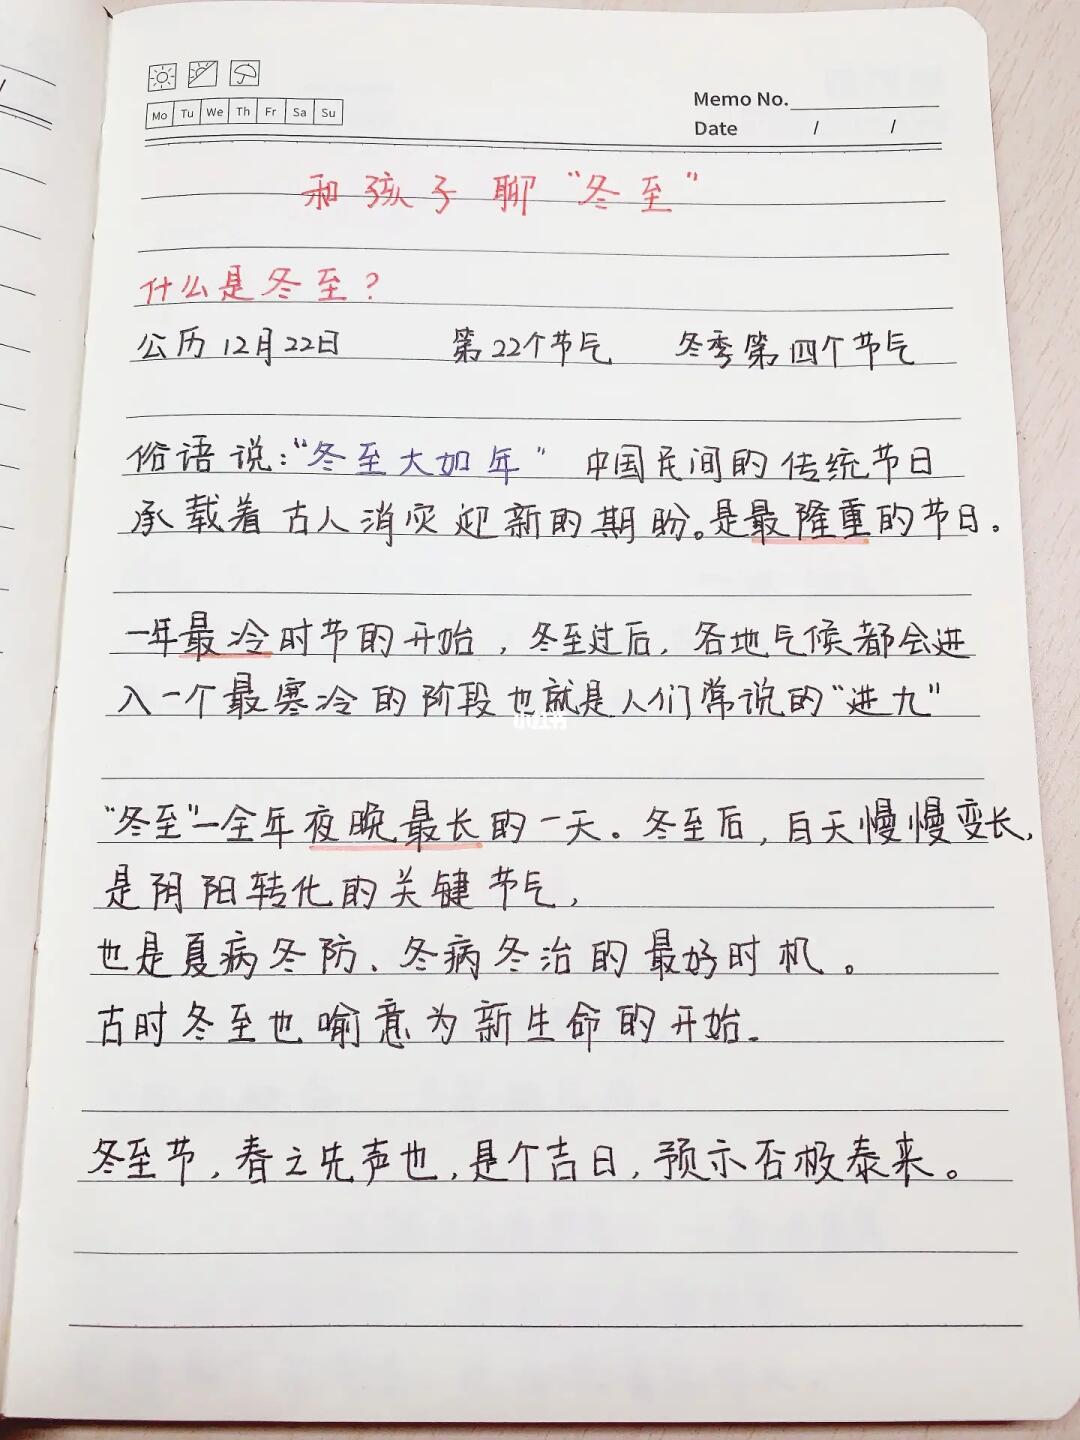 Mo Tu We Th Fr Sa Su
Memo No.
Date / /
和孩子聊“冬至”
什么是冬至？
公历12月22日 第22个节气 冬季第四个节气
俗语说：“冬至大如年” 中国民间的传统节日
承载着古人消灾迎新的期盼。是最隆重的节日。
一年最冷时节的开始，冬至过后，各地气候都会进
入一个最寒冷的阶段也就是人们常说的“进九”
小红书
“冬至”一全年夜晚最长的一天。冬至后，白天慢慢变长，
是阴阳转化的关键节气，
也是夏病冬防、冬病冬治的最好时机。
古时冬至也喻意为新生命的开始。
冬至节，春之先声也，是个吉日，预示否极泰来。